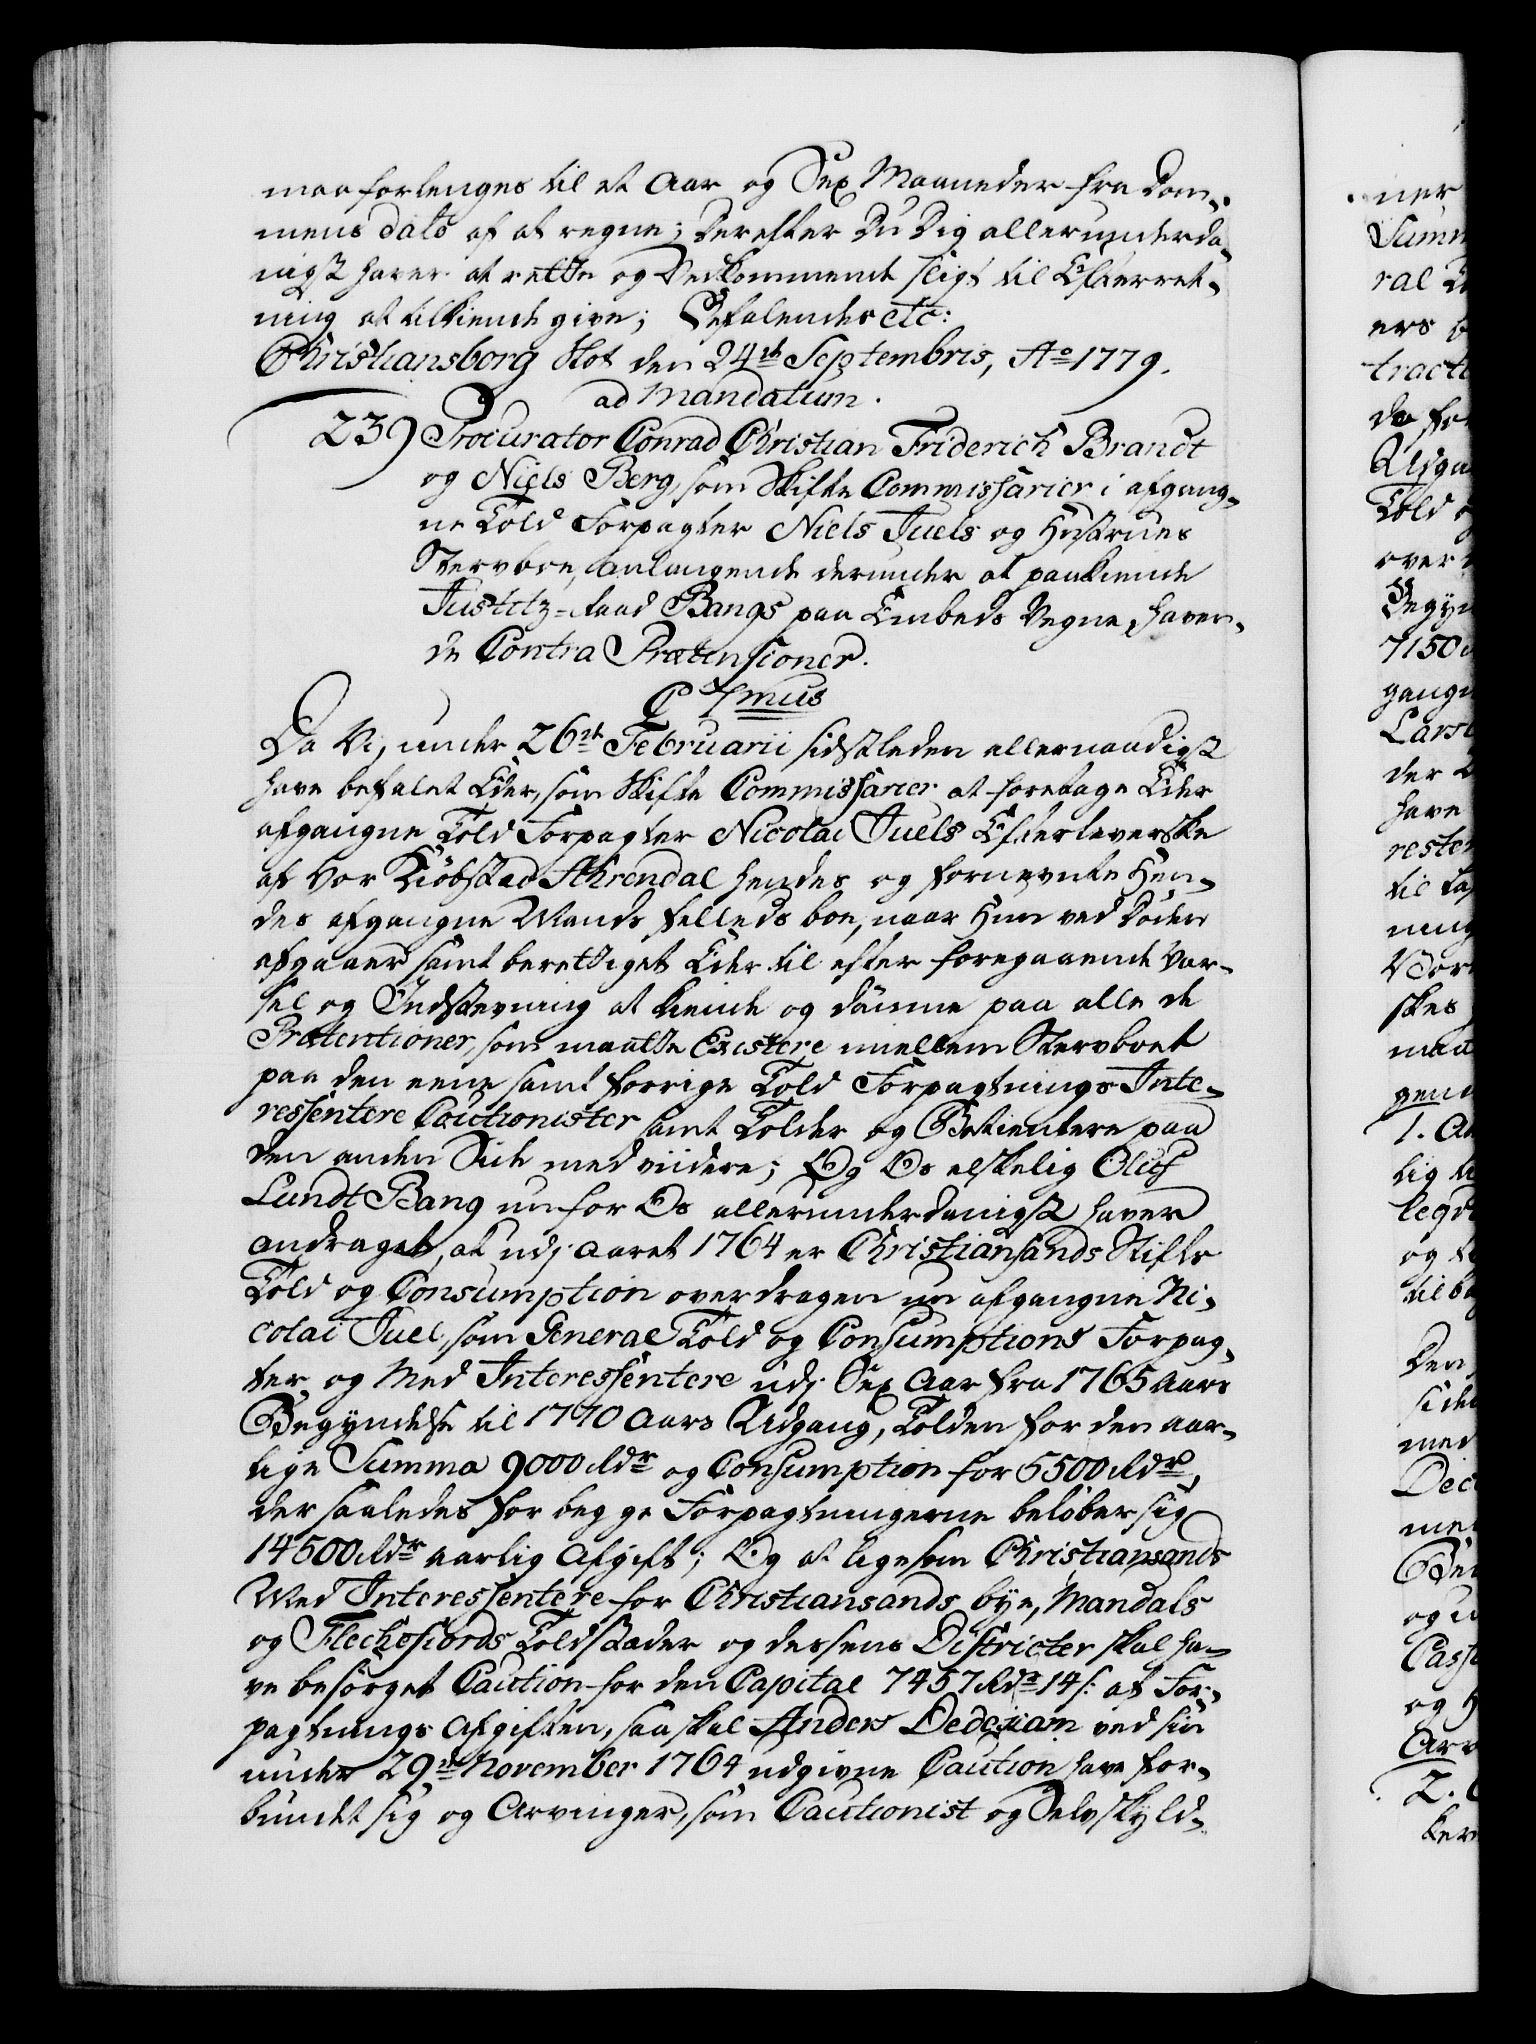 maa forlenges til et Aar og Sex Maaneder fra Dom¬
mens dato af at regne; Derefter Du Dig allerunderda¬
nigst haver at rette og Vedkommende sligt til Efterret¬
ning at tilkiende give; Befalendes etc:
Christiansborg Slot den 24de Septembris, Ao 1779.
ad Mandatum.
239 Procurator Conrad Christian Friderich Brandt
og Niels Berg, som Skifte Commissarier i afgang¬
ne Told Forpagter Niels Juels og Hustrues
Stervboe, anlangende derunder at paakiende
Justitz-Raad Bangs paa Embeds Vegne, haven¬
de Contra Prætensioner.
C 7mus
Da Vi, under 26de Februarii sidstleden allernaadigst
have befalet Eder, som Skifte Commissarier at foretage Eder
afgangne Told Forpagter Nicolai Juels Efterleverske
af Vor Kiöbstad Ahrendal hendes og fornevnte Hen¬
des afgangne Mands Fælleds boe, naar Hun ved Döden
afgaaer samt berettiget Eder til efter foregaaende Var¬
sel og Indstevning at kiende og dömme paa alle de
Prætentioner, som maatte Existere imellem Stervboet
paa den eene samt forrige Told Forpagtnings Inte¬
ressentere Cautionister samt Tolder og Betientere paa
den anden Side med viidere; Og Os elskelig Oluf
Lundt Bang nu for Os allerunderdanigst haver
andraget, at udj Aaret 1764 er Christiansands Stifts
Told og Consumption overdragen nu afgangne Ni¬
colai Juel, som General Told og Consumptions Forpag¬
ter og Med Interessentere udj Sex Aar fra 1765 Aars
Begyndelse til 1770 Aars Udgang, Tolden for den aar¬
lige Summa 9000 Rdr og Consumption for 5500 Rdr,
der saaledes for begge Forpagtningerne beløber sig
14500 Rdr aarlig Afgift; Og at ligesom Christiansands
Med Interessentere for Christiansands bye, Mandals
og Flechefiords Toldstæder og dessens Districter skal ha¬
ve besörget Caution for den Capital 7457 Rdr 14 s: af For¬
pagtnings Afgiften, saa skal Anders Dedekam ved sin
under 29de November 1764 udgivne Caution have for¬
bundet sig og Arvinger, som Cautionist og Selvskyld¬
ner
Summ
ral
ers
tract
de
Told
over
Begyn
7150
gangn
Lars
der
have
reste
til
ning
skes
maa
gen
1.
lig
legd
og
tilba
Den
side
med
Dec
me
og
Cass
og
Arv
2.